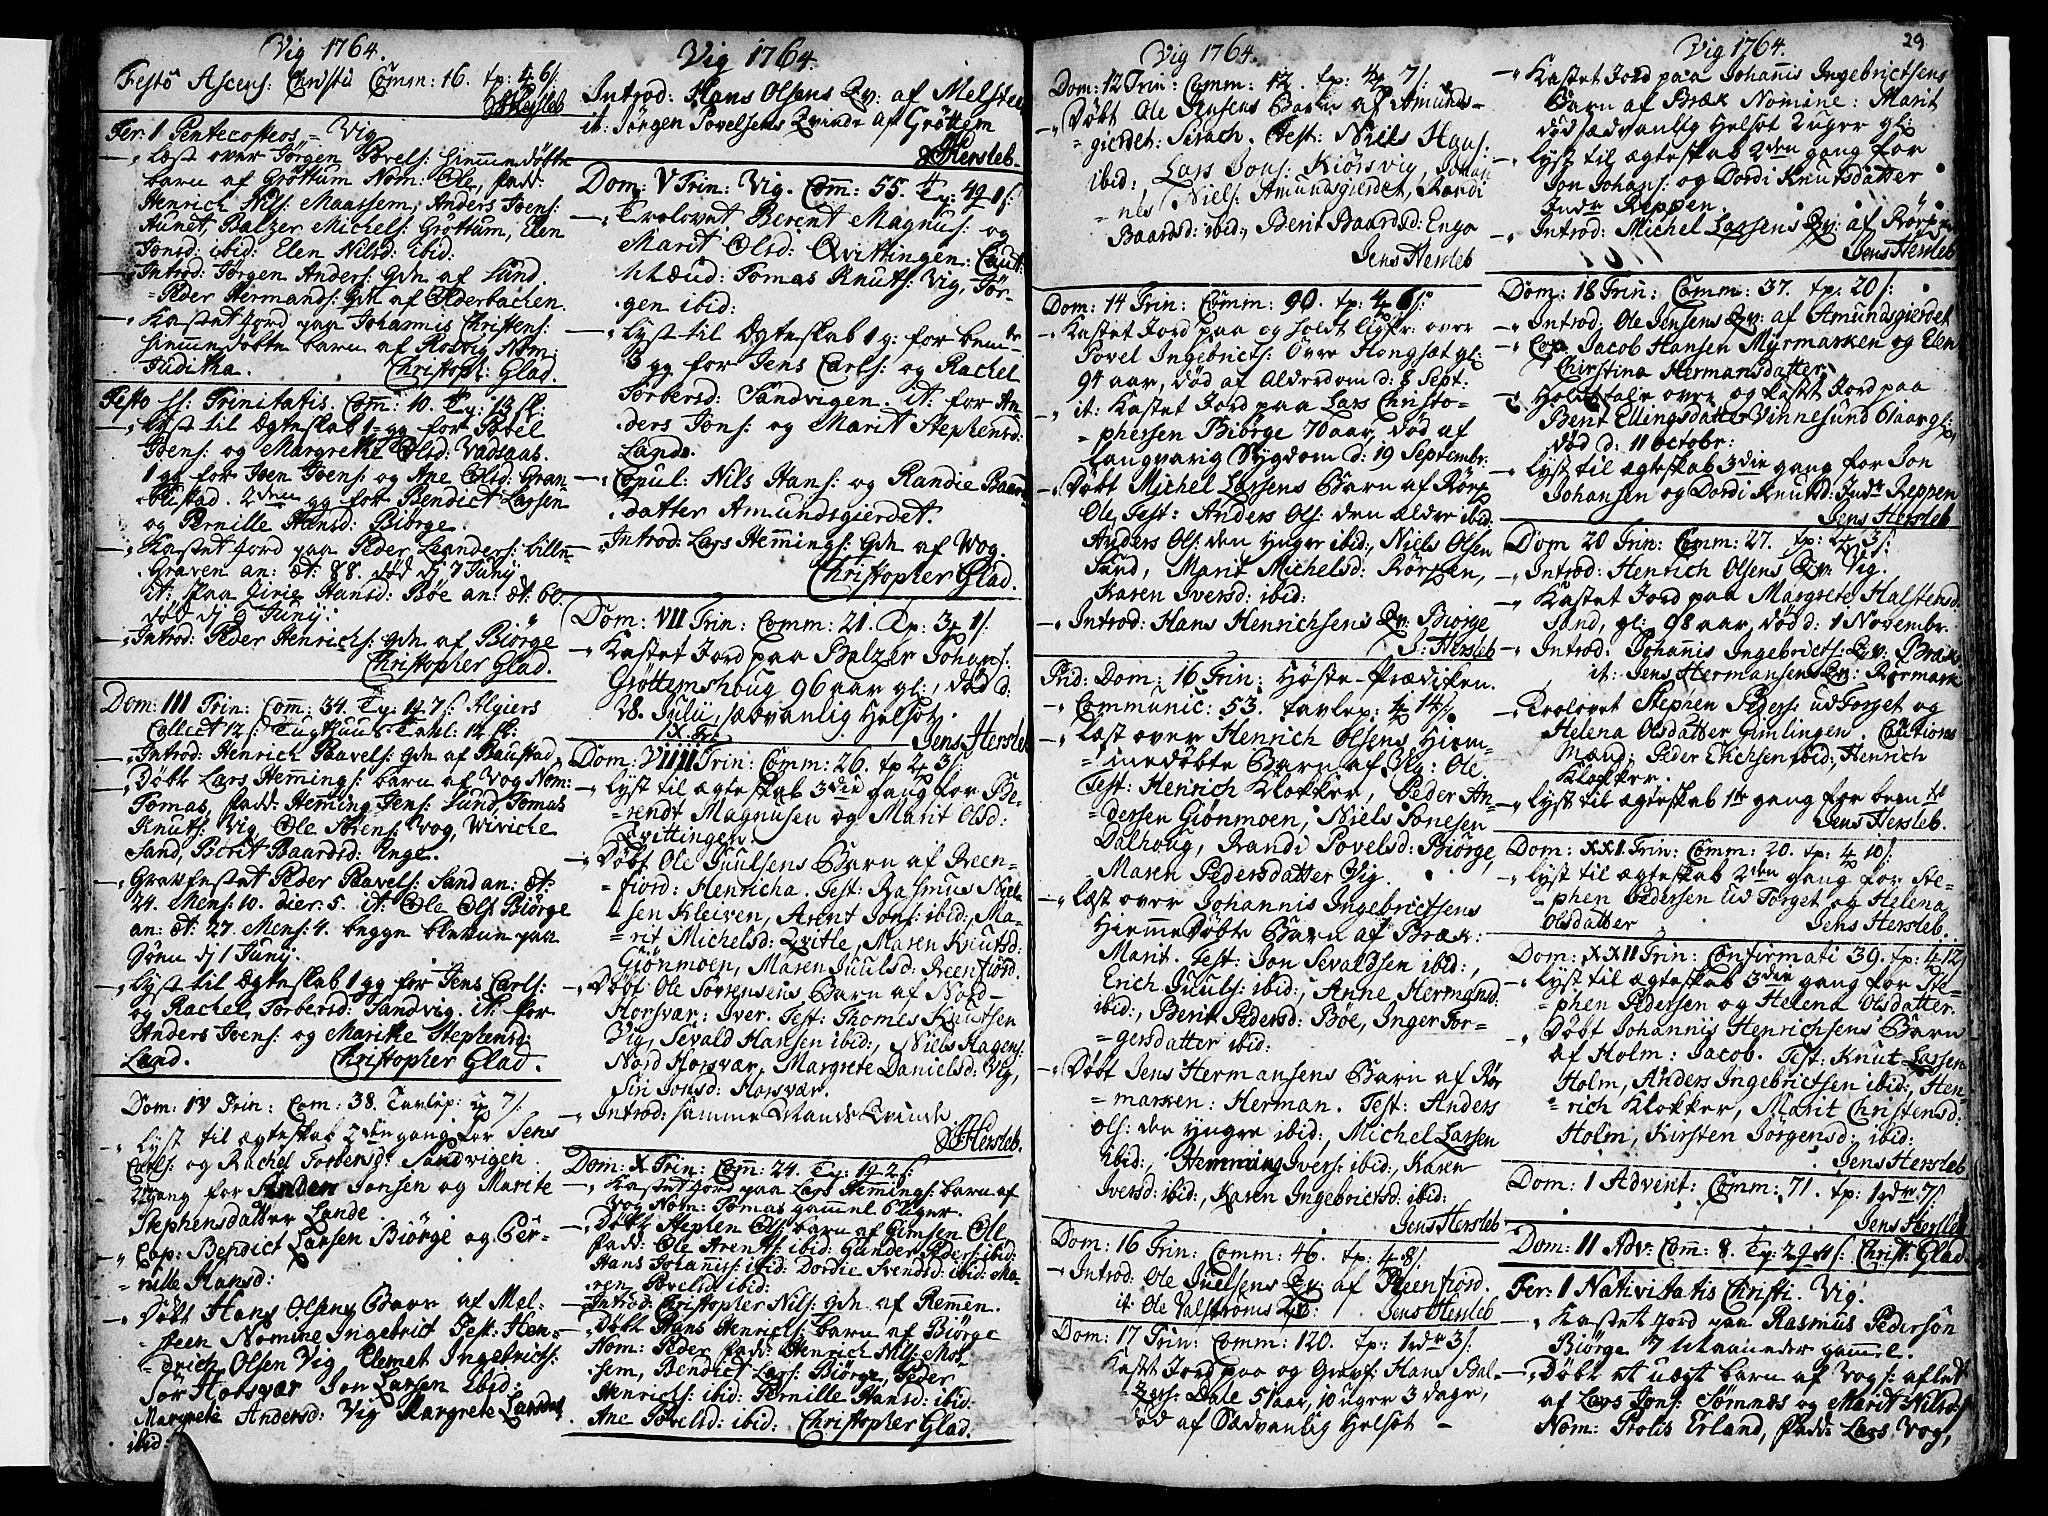 Vig 1764.
Festo Ascens: Christi Comm: 16. tp: 4 6/:
JHersleb
Fer: 1 Pentecostes = Vig
Læst over Jørgen Povels: hiemmedøbte
barn af Grøttum Nom: Ole, fadd:
Henrich Nils: Maassem, Anders Joens:
Aunet, Balzer Michels: Grøttum, Elen
Jonsd: ibid: Elen Nilsd: ibid:
Introd: Jørgen Anders: Qdn af Lund.
Peder Hermands: Qdn af Olderbachen
Kastet Jord paa Johannis Christens:
hiemmedøbte barn af Rosvig Nom:
Juditha. Christoph: Glad.
Festo SS: Trinitatis. Com: 10. Ty: 13 sk:
Lyst til Ægteskab 1 gg for Povel
Joens: og Margrethe Olsd: Vadsaas.
1 gg for Joen Joens: og Ane Olsd: Gran-
blistad. 2den gg for Bendict Larsen
og Pernille Hansd: Biørge.
Kastet Jord paa Peder Leanders: Lille-
Graven an: æt: 88. død dj 7 Junij
it: paa Hansd: Bøe an: æt: 60.
død dj 3 Junij:
Introd: Peder Henrichs: qdn af Biørge
Christopher Glad.
Dom: III Trin: Com: 34. Ty: 1 4 7/: Algiers
Collect 12/: Tugthuus Tavl: 12 sk:
Introd: Henrich Paavels: Qdn af Baustad
Døbt Lars Hemings: barn af Vog Nom:
Tomas, fadd: Heming Jens: Lund, Tomas
Knuts: Vig, Ole Sørens: Vog, Wiviche
Sand, Berit Baardsd: Enge.
Gravfestet Peder Paavels: Sand an: æt:
24. Mens: 10. dier: 5. it: Ole Ols: Biørge
an: æt: 27. Mens: 4. begge blevne paa
Søen dj 1 Junij.
Lyst til Ægteskab 1 gg for Jens Carls:
og Rachel Torbersd: Sandvig. it: for
Anders Joens: og Marithe Stephensd:
Land. Christopher Glad.
Dom: IV Trin: Com: 38. Tavlep: 2 7/:
Lyst til ægteskab 2den gang for Jens
Carls: og Rachel Torbensd: Sandvigen
2 gang for Anders Jonsen og Marite
Stephensdatter Lande.
Cop: Bendict Larsen Biørge og Per-
nille Hansd:
Døbt Hans Olsens Barn af Mel-
steen Nomine Ingebrict Test: Hen-
drich Olsen Vig, Clemet Ingebrichs:
Sør Horsvær Jon Larsen ibid:
Margrete Andersd: Vig Margrete Larsdat
ibid:
Vig 1764.
Introd: Hans Olsens Qv: af Melsteen
it: Jørgen Povelsens Qvinde af Grøttem
JHersleb.
Dom: V Trin: Vig. Com: 55. Ty: 49 1/:
Trolovet Berent Magnus: og
Marit Olsd: Qvittingen: Caut:
Mænd: Tomas Knuts: Vig, Jør-
gen ibid:
Lyst til Ægteskab 1 g: for bemte
3 gg for Jens Carls: og Rachel
Torbersd: Sandvigen. it: for An-
ders Jons: og Marit Stephensd:
Lande.
Copul: Nils Hans: og Randie Baards
datter Amundsgierdet.
Introd: Lars Hemings: Qdn af Wog.
Christopher Glad.
Dom: VII Trin: Comm: 21. Tp: 34 1/:
Kastet Jord paa Balzer Johans:
Grøttemshoug 96 aar gl:, død d:
28. Julii, sædvanlig Helsot.
Jens Hersleb
IX Tri:
Dom: VIIII Trin: Comm: 26. tp 24 3/:
lyst til ægteskab 3die gang for Be-
rendt Magnusen og Marit Olsd:
Qvittingen.
Døbt Ole Juulsens Barn af Reen-
fiord: Henricha. Test: Rasmus Niel-
sen Kleiven, Arent Jons: ibid:, Ma-
rit Michelsd: Qvitle, Maren Knutsd:
Giønmoen, Maren Juulsd: Reenfiord.
Døbt Ole Sorrensens Barn af Nord-
Horsvær: Iver. Test: Thomes Knutsen
Vig, Sevald Hansen ibid:, Niels Hagens:
Nord Horsvær, Margrete Danielsd: Vig,
Siri Jonsd: Horsvær.
Introd: samme Mands Qvinde
JHersleb.
Dom: X Trin: Com: 24. Ty: 19 2/:
Kastet Jord paa Lars Hemings: barn af
Vog Nom: Tomas gammel 6 Uger.
Døbt Stephen Ols: barn af Gimsen Ole
fadd: Ole Arents: ibid: Gunder Peders: ibid:
Hans Johannis: ibid: Dordie Svendsd: ibid: Ma-
ren Povelsd: ibid:
Introd: Christopher Nils: Qdn af Remen.
Døbt Hans Henrichs: barn af Biørge
Nom: Peder fadd: Henrich Nils: Mos-
sem, Bendict Lars: Biørge, Peder
Henrichs: ibid: Pernille Hansd: ibid:
Ane Povelsd: ibid: Christopher Glad.
Vig 1764.
Dom: 12 Trin: Comm: 12. tp: 4 7/:
Døbt Ole Jensens Barn af Amunds-
gierdet: Sirach. Test: Niels Hans:
ibid: Lars Jons: Kiørsvig, Johan-
nes Niels: Amundsgierdet, Randi
Baardsd: ibid:, Berit Baardsd: Enge
Jens Hersleb
Dom: 14 Trin: Comm: 90. tp: 4 6/:
Kastet Jord paa og holdt ligpr: over
Povel Ingebricts: Øvre Hongsæt gl:
94 aar, død af Alderdom d: 8 Sept:
it: Kastet Jord paa Lars Christo-
phersen Biørge 70 aar, død af
langvarig Svigdom d: 19 Septembr:
Døbt Michel Larsens Barn af Rørø
Ole, Test: Anders Ols: den ældre ibid:
Anders Ols: den yngre ibid:, Niels Olsen
Sund, Marit Michelsd: Rørøen,
Karen Iversd: ibid:
Introd: Hans Henrichsens Qv: Biørge
J: Hersleb
Prid: Dom: 16 Trin: Høste-Prædiken.
Communic: 53. Tavlep: 4 14/:
Læst over Henrich Olsens Hiem-
medøbte Barn af Vig: Ole.
Test: Henrich Klokker, Peder An-
dersen Giønmoen, Niels Jonesen
Dalhoug, Randi Povelsd: Biørge,
Maren Pedersdatter Vig.
Læst over Johannis Ingebrictsens
Hiemmedøbte Barn af Bræk:
Marit. Test: Jon Sevaldsen ibid:,
Erich Juuls: ibid:, Anne Hermansd:
ibid:, Berit Pedersd: Bøe, Inger Tor-
gersdatter ibid:
Døbt Jens Hermansens Barn af Rør
marken: Herman. Test: Anders
Ols: den yngre ibid:, Michel Larsen
ibid:, Hemming Ivers: ibid:, Karen
Iversd: ibid:, Karen Ingebrictsd: ibid:
Jens Hersleb
Dom: 16 Trin: Comm: 46. tp: 4 8/:
Introd: Ole Juulsens Qv: af Reenfiord.
it: Ole Valstrøms Qv: Jens Hersleb
Dom: 17 Trin: Comm: 120. tp: 1 rdr 3/:
Kastet Jord paa og Gravf: Hans Bal-
zers: Dale 51 aar, 10 uger 3 dage,
død af Sædvanlig Helsot
Vig 1764. 29
Kastet Jord paa Johannis Ingebrictsens
Barn af Bræk Nomine: Marit
død sædvanlig Helsot 2 uger gl:
lyst til ægteskab 2den gang for
Jon Johans: og Dordi Knutsdatter
Indr Reppen.
Introd: Michel Larsens Qv: af Rørøen
Jens Hersleb
Dom: 18 Trin: Comm: 37. tp: 20/:
Introd: Ole Jensens Qv: af Amundsgierdet
Cop: Jacob Hansen Myrmarken og Elen
Christina Hermansdatter
Holdt tale over og kastet Jord paa
Berit Ellingsdatter Vinnesund 61 aar gl:
død d: 11 octobr:
lyst til ægteskab 3die gang for Jon
Johansen og Dordi Knutsd: Indr Reppen
Jens Hersleb
Dom 20 Trin: Comm: 27. tp: 24 3/:
Introd: Henrich Olsens Qv: Vig.
Kastet Jord paa Margrete Halstensd:
Sand, gl: 98 aar, død d: 1 Novembr.
Introd: Johannis Ingebricts: Qv: Bræk.
it: Jens Hermansens Qv: Rørmark
Trolovet Stephen Peders: ud Torget og
Helena Olsdatter Gimlingen. Cautions
Mænd: Peder Erichsen ibid:, Henrich
Klokker.
lyst til ægteskab 1ste gang for bemte
Jens Hersleb.
Dom: XXI. Trin: Comm: 20. tp: 4 10/:
lyst til ægteskab 2den gang for Ste-
phen Pedersen ud Torget og Helena
Olsdatter Jens Hersleb.
Dom: XXII Trin: Confirmati 39. tp: 4 12/
lyst til ægteskab 3die gang for Ste-
phen Pedersen og Helena Olsdatter.
Døbt Johannis Henrichsens Barn
af Holm: Jacob. Test: Knut Larsen
Holm, Anders Ingebrictsen ibid:, Hen-
rich Klokker, Marit Christensd:
Holm, Kirsten Jørgensd: ibid:
Jens Hersleb
Dom: 1 Advent: Comm: 71. tp: 1 rdr 7/:
Jens Hersleb
Dom: 11 Adv: Com: 8. Ty: 29 sk: Christ: Glad.
Fer: 1 Nativitatis Christi. Vig:
Kastet Jord paa Rasmus Pedersøn
Biørge 7 Maaneder gammel.
Døbt et uægt barn af Vog: aflet
af Lars Jons: Sømnæs og Marit Nilsd:
Nom: Prolis Erland, fadd: Lars Vog,